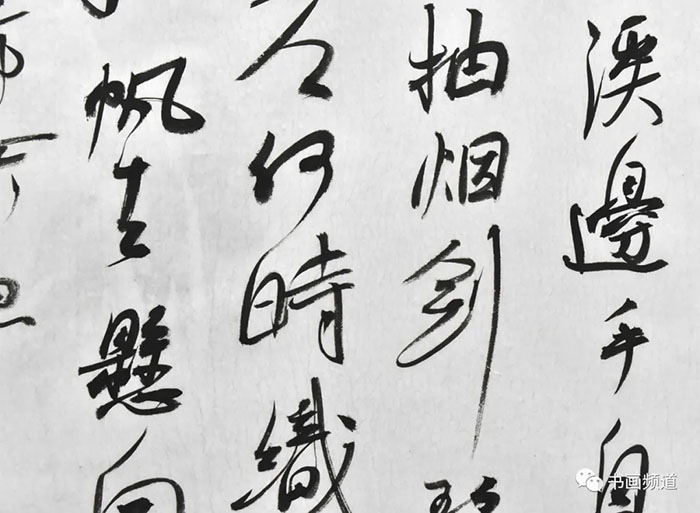 溪邊手自
抽烟剑
何時織
帆去懸
书画频道